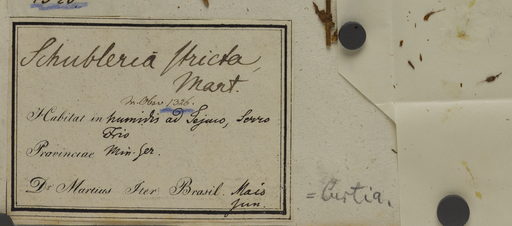 Schübleria stricta,
Mart.
in Obser. 1326.
Habitat in humidis ad Tejuco, Serro
Frio
Provinciae Min. Ger.
Dr Martius Iter Brasil. Maio
Jun.
= Curtia.